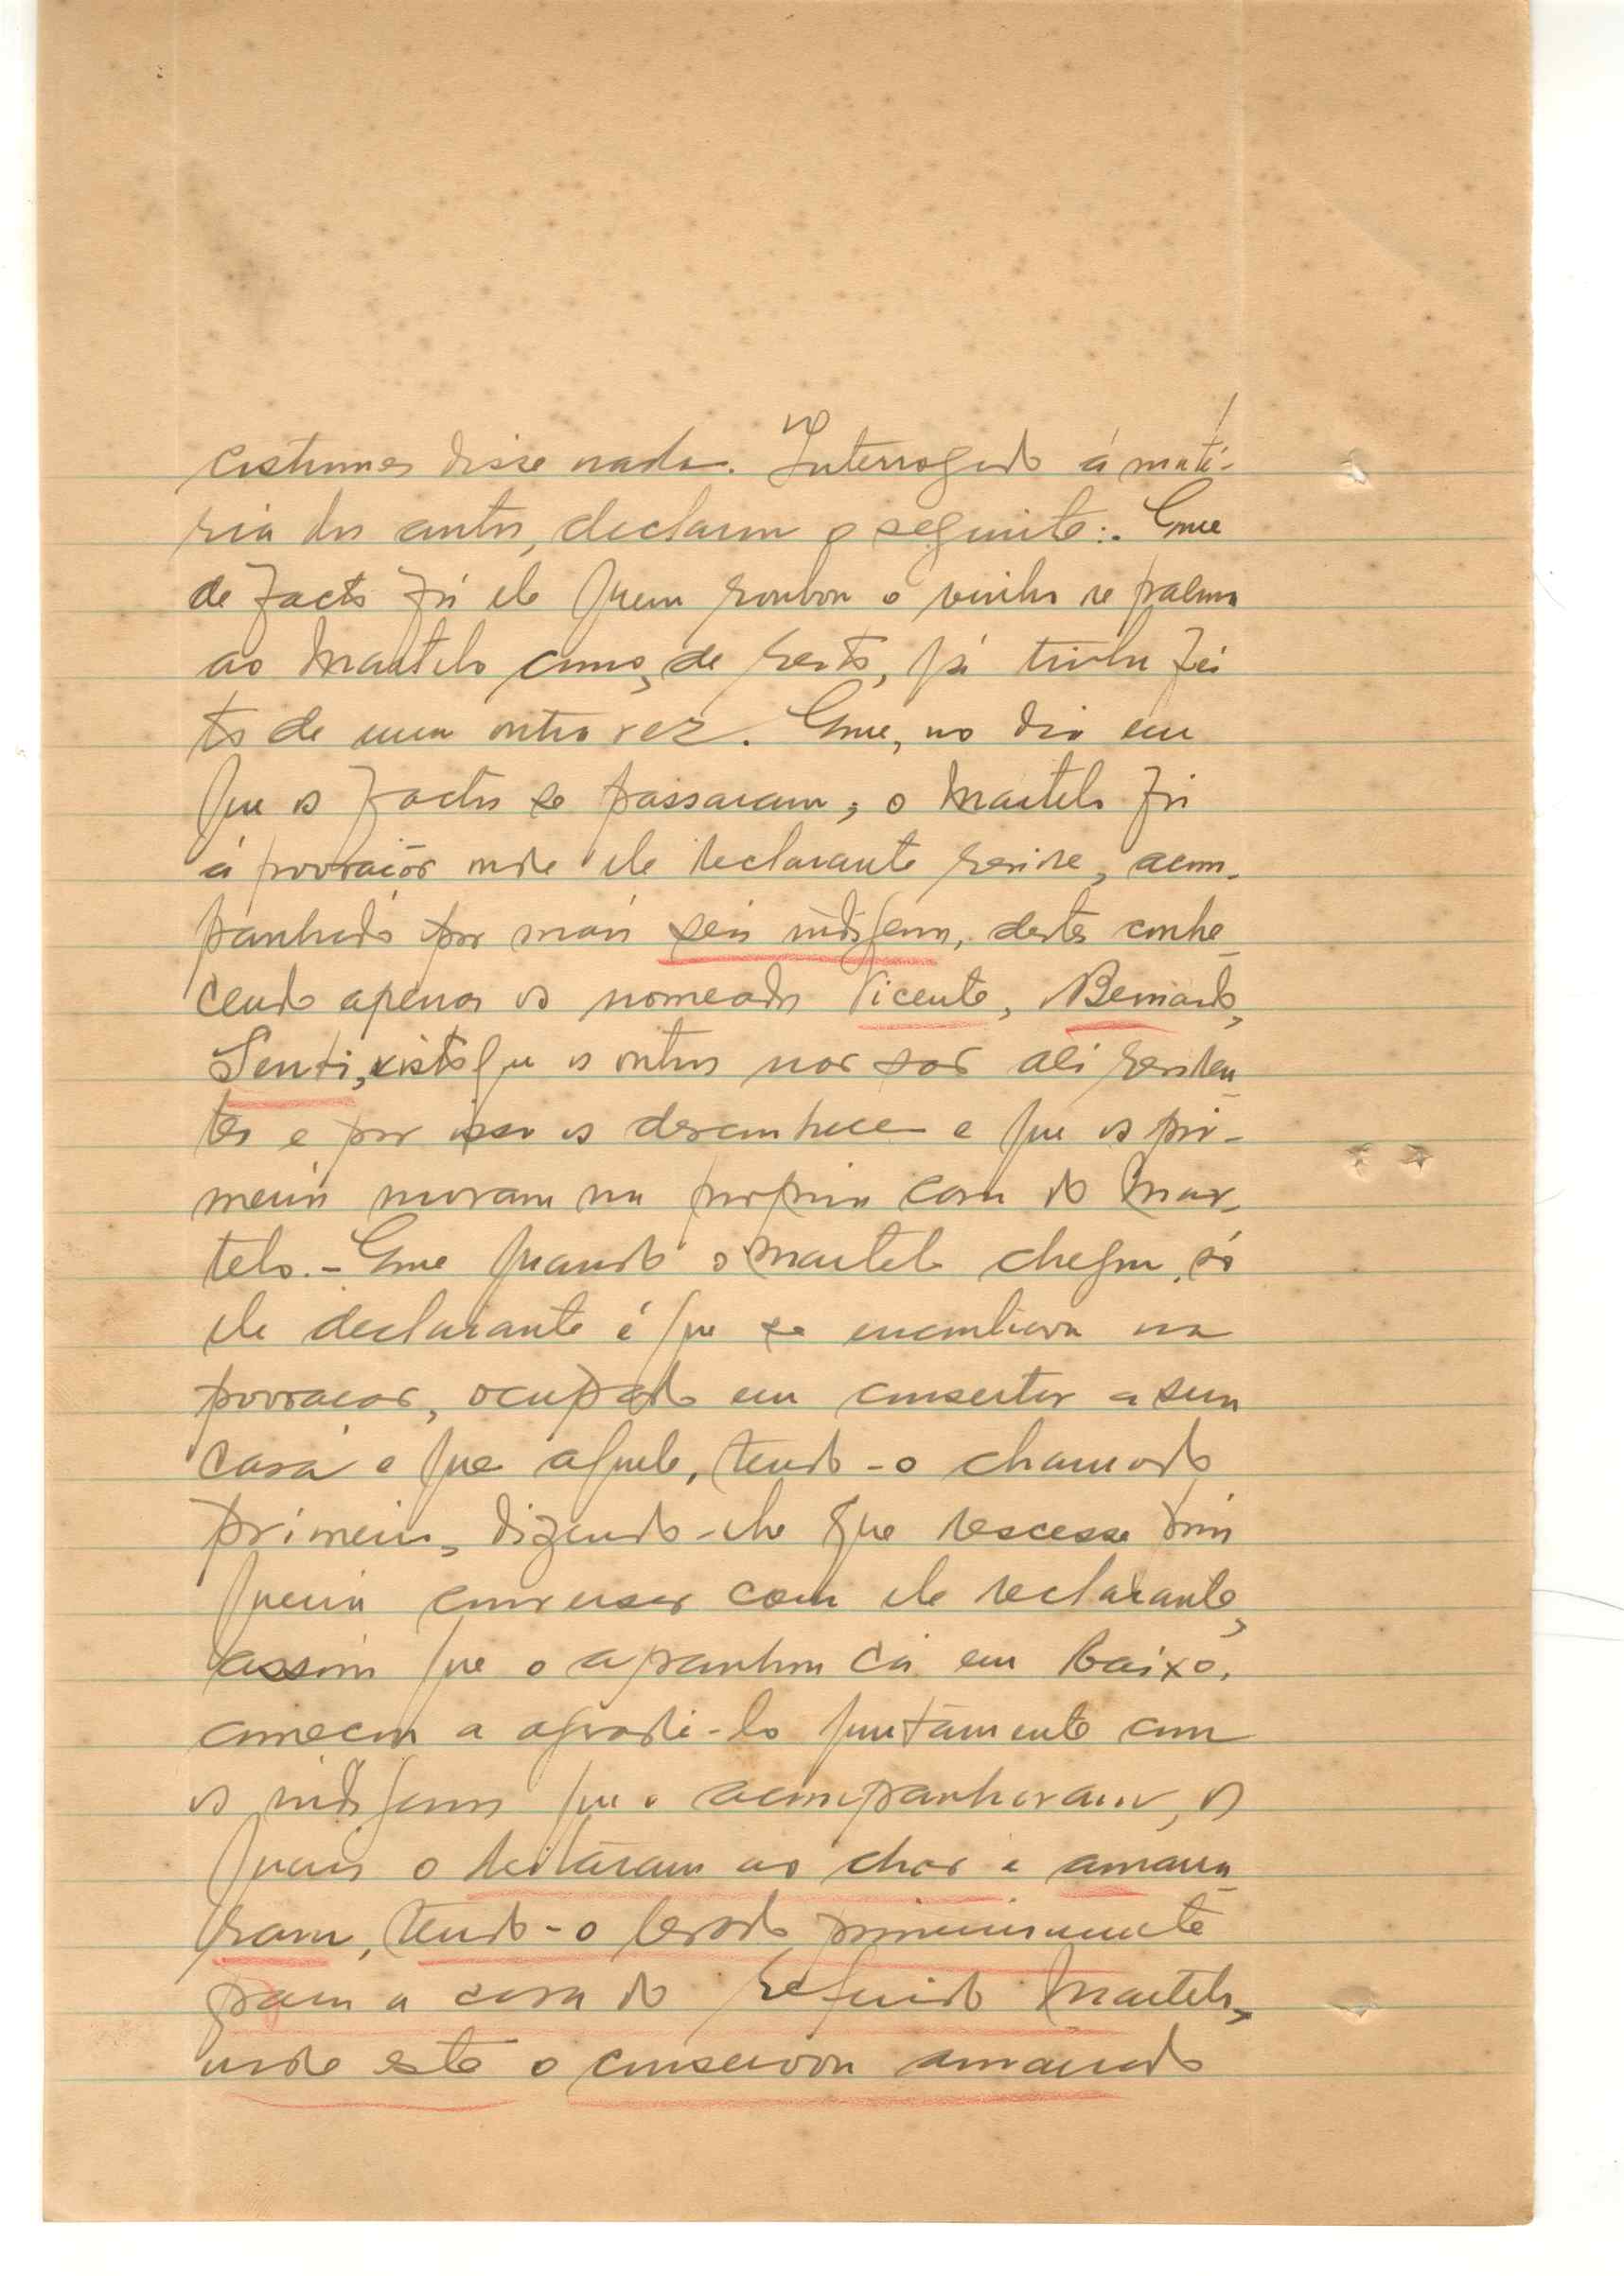 costumes disse nada. Interrogado á maté-
ria dos autos, declarou o seguinte:. Que
de facto foi ele quem roubou o vinho de palma
ao Martelo como, de resto, já tinha fei
to de uma outra vez. Que, no dia em
que os factos se passaram, o Martelo foi
á povoação onde ele declarante reside, acom-
panhado por mais seis indígenas, destes conhe-
cendo apenas os nomeados Vicente, Bernardo,
Senti, visto que os outros não são ali residen-
tes e por isso os desconhece e que os pri-
meiros moram na propria casa do Mar-
telo.- Que quando o Martelo chegou, só
ele declarante é que se encontrava na
povoação, ocupado em consertar a sua
casa e que aquele, tendo-o chamado
primeiro, dizendo-lhe que descesse pois
queria conversar com ele declarante,
assim que o apanhou cá em baixo,
começou a agredi-lo juntamente com
os indígenas que o acompanhavam, os
quais o deitáram ao chão e amarra-
ram, tendo-o levado primeiramente
para a casa do referido Martelo,
onde este o conservou amarrado